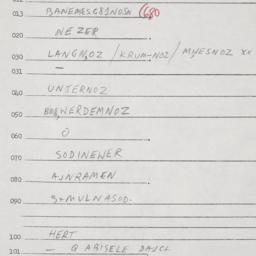 013 BANEMES681NOSN 680
020 NEZER
030 LANGNOZ / KRUM-NOZ / MYESNOZ XX
031 —
040 UNTERNOZ
050 WERDEMNOZ
060 O
070 SODINEWER
080 AJNRAMEN
090 S+MULNASOD.
100 HERT
101 — G ABISELE